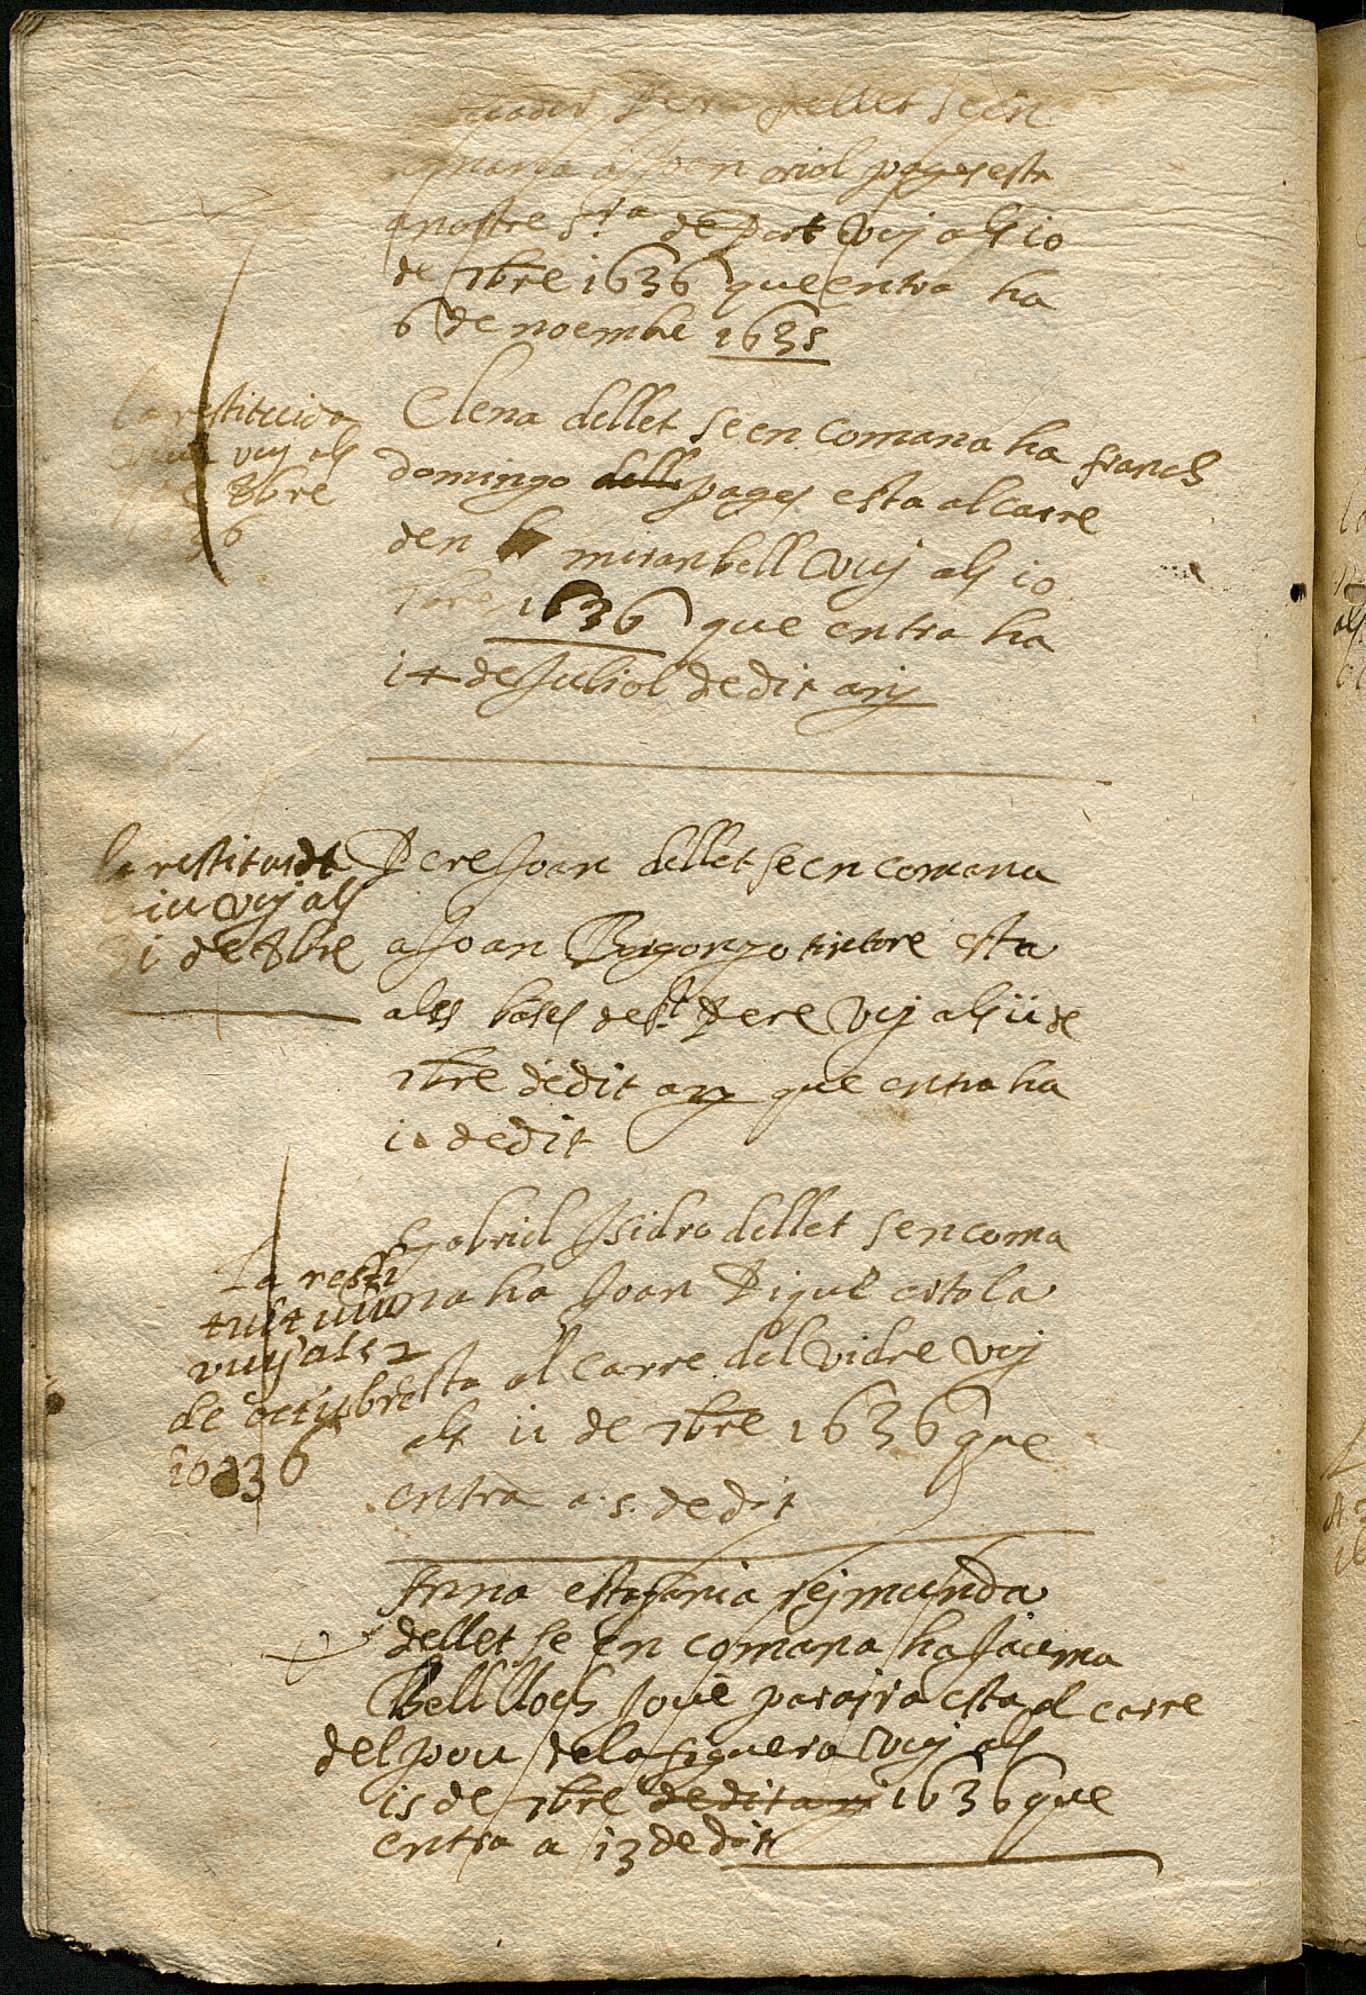 Pere dellet se en
comana a Joan oriol pages esta
a nostre Sra de Port vuy als 10
de 7bre 1636 que entra ha
6 de noembre 1635
la restituida
vuy als
8bre
36
Elena dellet se en comana ha franch
domingo dell pages esta al carre
den miranbell vuy als 10
7bre 1636 que entra ha
14 de Juliol de dit any
la restituida
vuy als
31 de 8bre
Pere Joan dellet se en comana
a Joan Bigorzo tintore esta
als bases de St Pere vuy als 11 de
7bre de dit any que entra ha
10 de dit
La resti
tuit
vuy als 2
de octubre
1636
Gabriel Isidro dellet sen coma
na ha Joan Pique estola
sta al carre del vidre vuy
als 11 de 7bre 1636 que
entra a .5. de dit
Anna estafania rejmunda
dellet se en comana ha Jauma
Bell lloch Jove paraira esta al carre
del pou de la figuera vuy als
15 de 7bre de dit any 1636 que
entra a 13 de dit